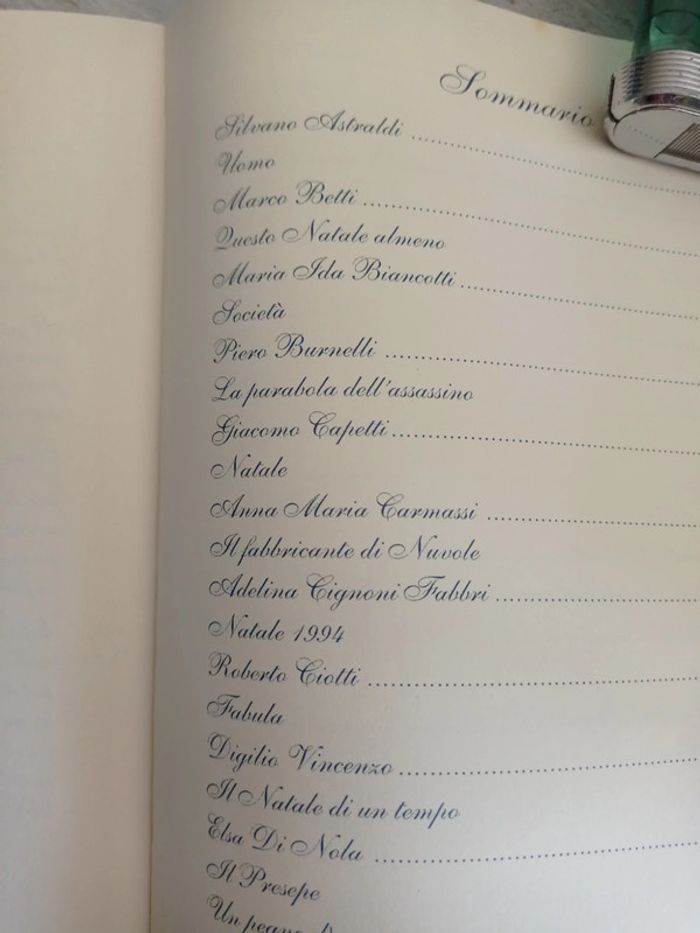 Sommario
Silvano Astraldi
Uomo
Marco Betti
Questo Natale almeno
Maria Ida Biancotti
Società
Piero Burnelli
La parabola dell'assassino
Giacomo Capetti
Natale
Anna Maria Carmassi
Il fabbricante di Nuvole
Adelina Cignoni Fabbri
Natale 1994
Roberto Ciotti
Fabula
Digilio Vincenzo
Il Natale di un tempo
Elsa Di Nola
Il Presepe
Un